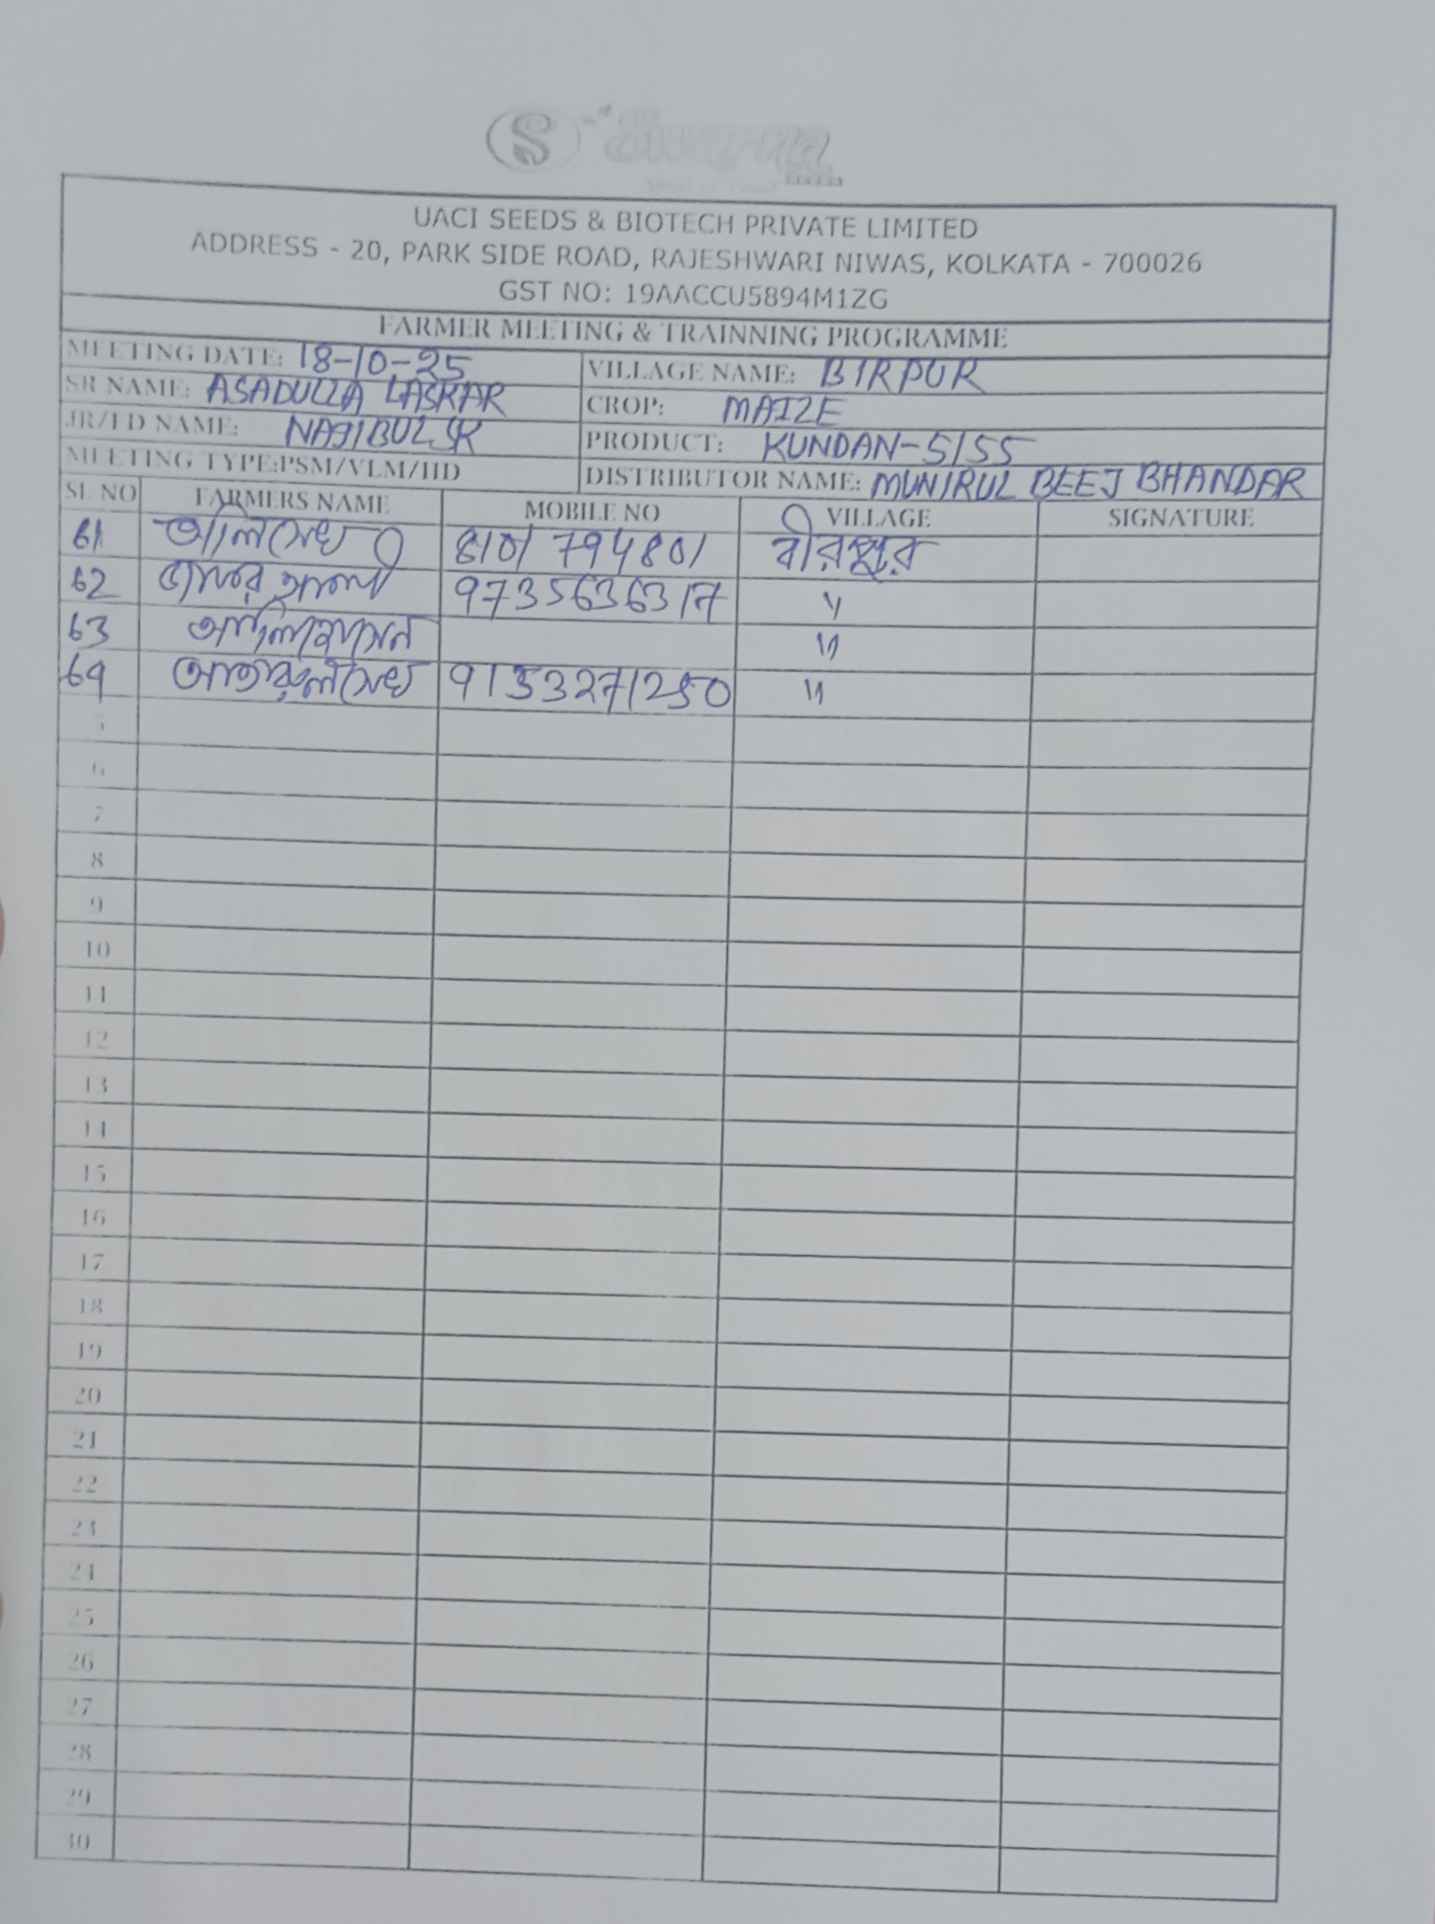 S Suvarna
UACI SEEDS & BIOTECH PRIVATE LIMITED
ADDRESS - 20, PARK SIDE ROAD, RAJESHWARI NIWAS, KOLKATA - 700026
GST NO: 19AACCU5894M1ZG
FARMER MEETING & TRAINNING PROGRAMME
MEETING DATE: 18-10-25 VILLAGE NAME: BIRPUR
SR NAME: ASADULLA LASKAR CROP: MAIZE
JR/FD NAME: NAJIBUL SK PRODUCT: KUNDAN-5155
MEETING TYPE:PSM/VLM/HD DISTRIBUTOR NAME: MUNIRUL BEEJ BHANDAR
SL NO FARMERS NAME MOBILE NO VILLAGE SIGNATURE
61 আলি সেখ 8101794801 বীরপুর
62 9735636317 〃
63 〃
64 সেখ 9153271250 〃
5
6
7
8
9
10
11
12
13
14
15
16
17
18
19
20
21
22
23
24
25
26
27
28
29
30